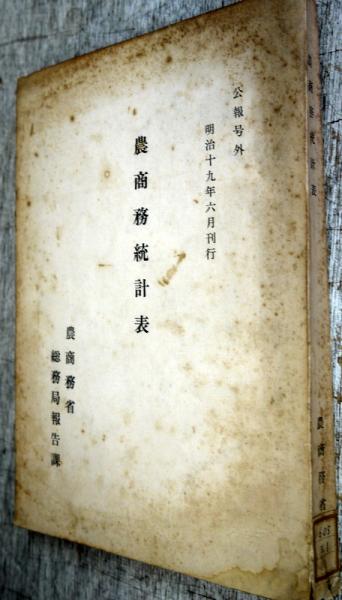 公報号外
明治十九年六月刊行
農商務統計表
農商務省
総務局報告課
農商務統計表
農商務省